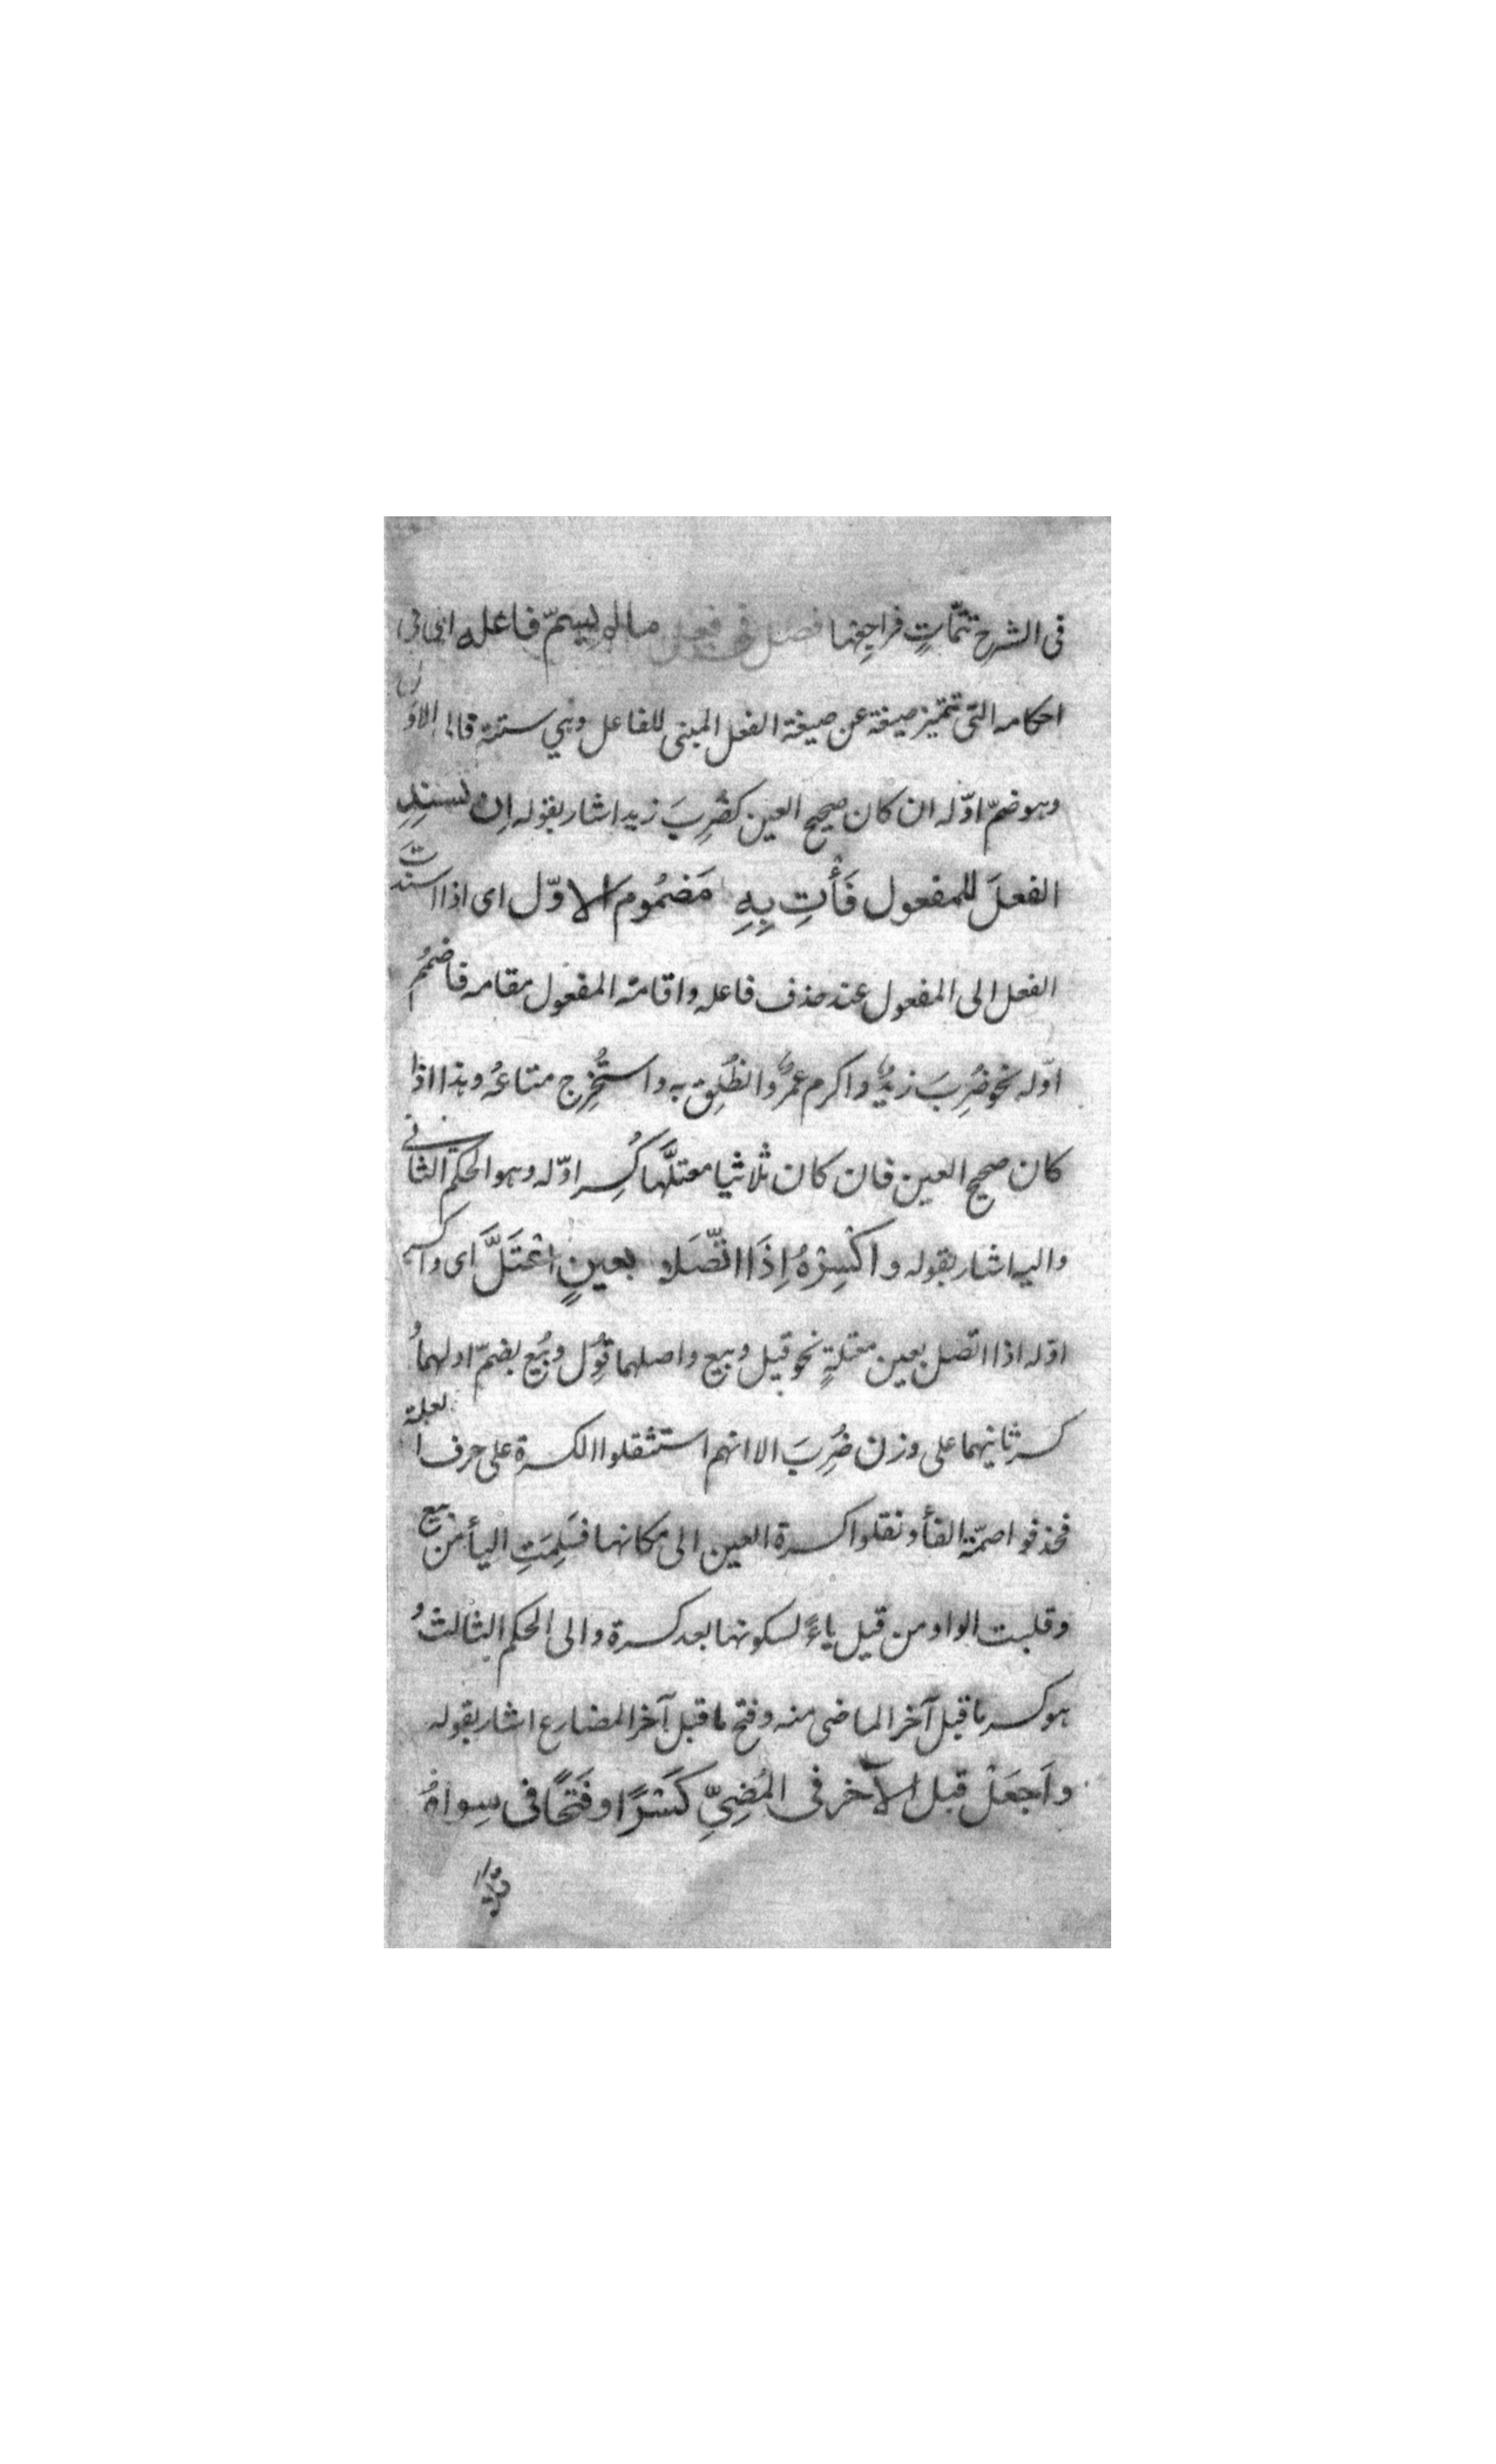 فى الشرح تتمّاتٍ فراجِعْها فصل فى فعل ما لم يسمّ فاعله اى فى
احكامه التى تتميز صيغة عن صيغة الفعل المبنى للفاعل وهي ستة فالاوّل
وهو ضمّ اوّله ان كان صحيح العين كضُرِبَ زيد اشار بقوله اِن تسنِدِ
الفعلَ للمفعول فَأْتِ بِهِ مَضمُوم الاوّل اى اذا اسندت
الفعل الى المفعول عند حذف فاعله واقامة المفعول مقامه فاضمُم
اوّله نحو ضُرِبَ زيدٌ واكرم عمرٌو انطُلِق به واستُخرِج متاعُه وهذا اذا
كان صحيح العين فان كان ثلاثيا معتلَّها كُسِر اوّله وهو الحكم الثانى
واليه اشار بقوله واكْسِرْهُ اِذَا اتّصَلا بعينٍ اعْتَلَّ اى واكسر
اوّله اذا اتصل بعين معتلةٍ نحو قيل وبيع واصلهما قُوِل وبُيِع بضمّ اولهما و
كسر ثانيهما على وزن ضُرِبَ الا انهم استثقلوا الكسرة على حرف العلة
فحذفوا ضمّة الفأ ونقلوا كسرة العين الى مكانها فسَلِمَتِ اليأ من بيع
وقلبت الواو من قيل ياءً لسكونها بعد كسرة والى الحكم الثالث و
هو كسر ما قبل آخر الماضى منه وفتح ما قبل آخر المضارع اشار بقوله
واَجعَلْ قبل الآخر فى المُضِىِّ كَسْرًا وفَتحًا فى سِواهُ